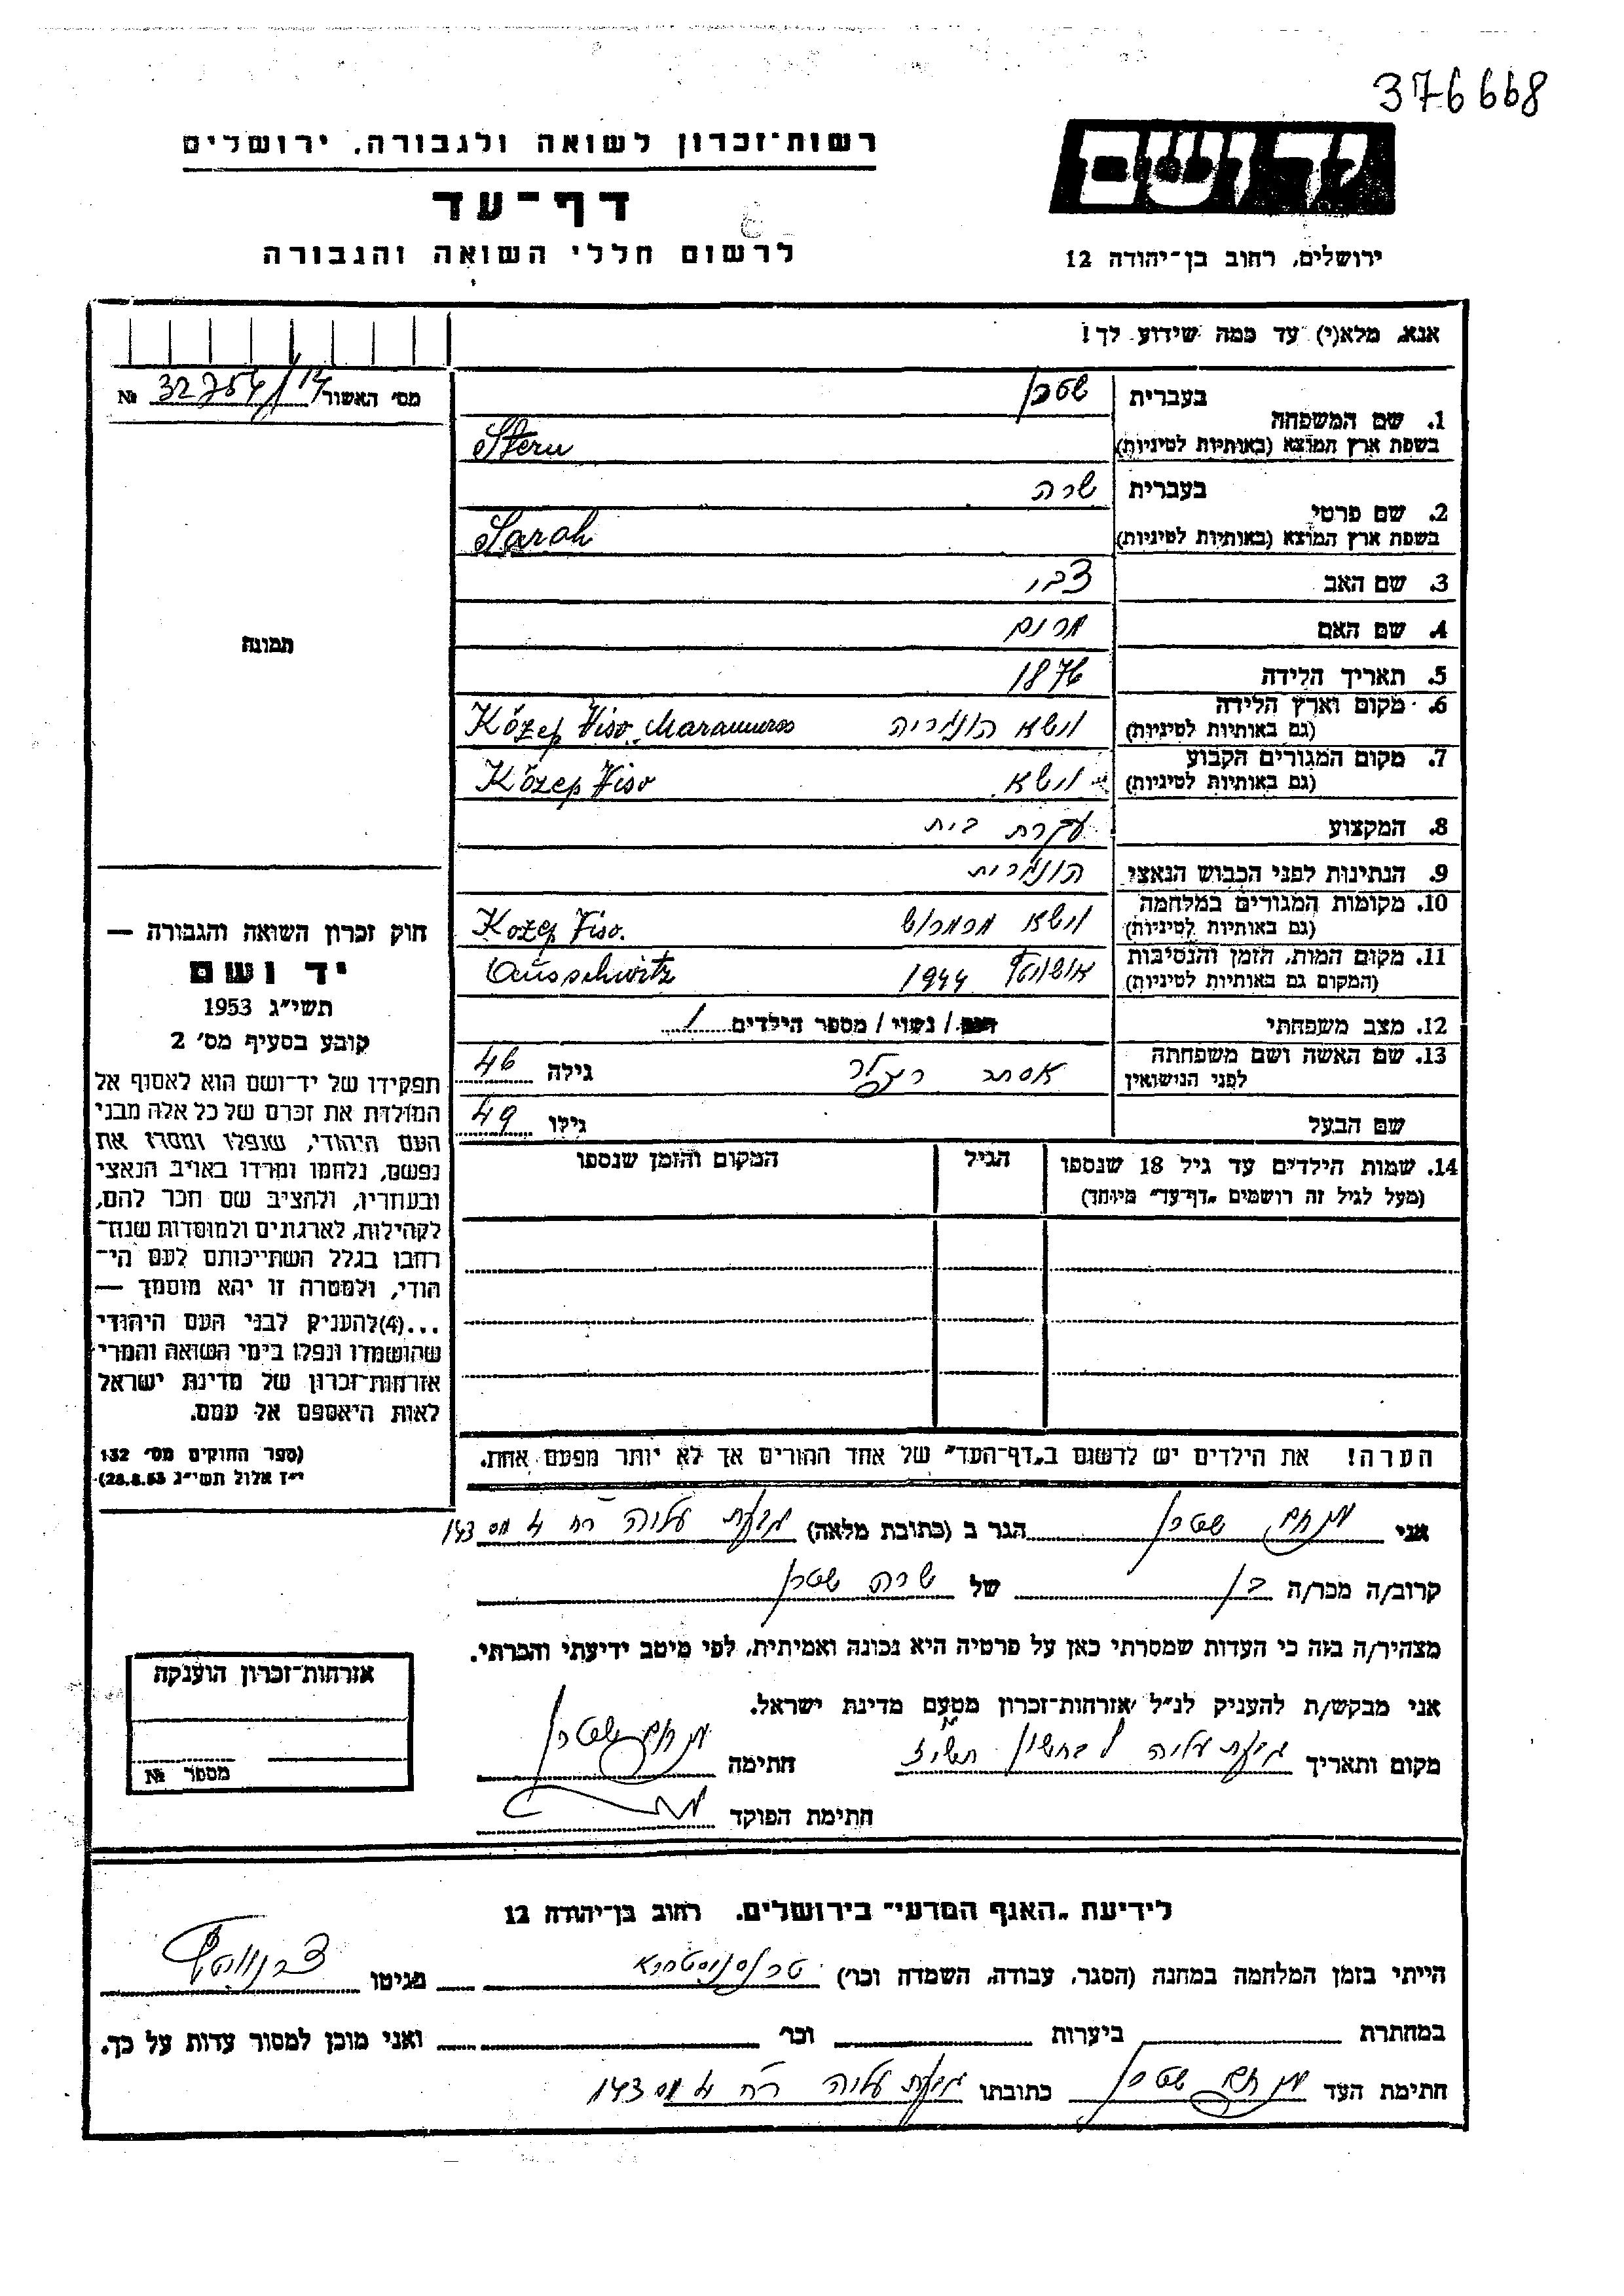 376668
יד ושם
רשות-זכרון לשואה ולגבורה, ירושלים
דף-עד
לרשום חללי השואה והגבורה
ירושלים, רחוב בן-יהודה 12
אנא, מלא(י) עד כמה שידוע לך!
מס' האשור 32754/14 №
1. שם המשפחה בעברית שטרן
בשפת ארץ המוצא (באותיות לטיניות) Stern
2. שם פרטי בעברית שרה
בשפת ארץ המוצא (באותיות לטיניות) Sarah
3. שם האב צבי
4. שם האם מרים
5. תאריך הלידה 1876
6. מקום וארץ הלידה (גם באותיות לטיניות) וישא הונגריה Közep Viso Maramuros
7. מקום המגורים הקבוע (גם באותיות לטיניות) וישא Közep Viso
8. המקצוע עקרת בית
9. הנתינות לפני הכבוש הנאצי הונגרית
10. מקומות המגורים במלחמה (גם באותיות לטיניות) וישא מרמרוש Kozep Viso.
11. מקום המות, הזמן והנסיבות (המקום גם באותיות לטיניות) אושוויץ 1944 Ausschwitz
12. מצב משפחתי רווק / נשוי / מספר הילדים 1
13. שם האשה ושם משפחתה לפני הנישואין אסתר גילה 46
שם הבעל גילו 49
14. שמות הילדים עד גיל 18 שנספו (מעל לגיל זה רושמים "דף-עד" מיוחד)
הגיל
המקום והזמן שנספו
תמונה
חוק זכרון השואה והגבורה —
יד ושם
תשי"ג 1953
קובע בסעיף מס' 2
תפקידו של יד-ושם הוא לאסוף אל
המולדת את זכרם של כל אלה מבני
העם היהודי, שנפלו ומסרו את
נפשם, נלחמו ומרדו באויב הנאצי
ובעוזריו, ולהציב שם וזכר להם,
לקהילות, לארגונים ולמוסדות שנח-
רבו בגלל השתייכותם לעם הי-
הודי, ולמטרה זו יהא מוסמך —
...(4) להעניק לבני העם היהודי
שהושמדו ונפלו בימי השואה והמרי
אזרחות-זכרון של מדינת ישראל
לאות היאספם אל עמם.
(ספר החוקים מס' 132
י"ז אלול תשי"ג 28.8.53)
הערה! את הילדים יש לרשום ב"דף-העד" של אחד ההורים אך לא יותר מפעם אחת.
אני מנחם שטרן הגר ב (כתובת מלאה) גבעת עליה רח 4 מס 143
קרוב/ה מכר/ה בן של שרה שטרן
מצהיר/ה בזה כי העדות שמסרתי כאן על פרטיה היא נכונה ואמיתית, לפי מיטב ידיעתי והכרתי.
אני מבקש/ת להעניק לנ"ל אזרחות-זכרון מטעם מדינת ישראל.
מקום ותאריך גבעת עליה ל בחשון תשי"ז חתימה מנחם שטרן
חתימת הפוקד
אזרחות-זכרון הוענקה
מספר №
לידיעת "האגף המדעי" בירושלים, רחוב בן-יהודה 12
הייתי בזמן המלחמה במחנה (הסגר, עבודה, השמדה וכו') טרנסניסטריא בגיטו
במחתרת ביערות וכו' ואני מוכן למסור עדות על כך.
חתימת העד מנחם שטרן כתובתו גבעת עליה רח 4 מס 143